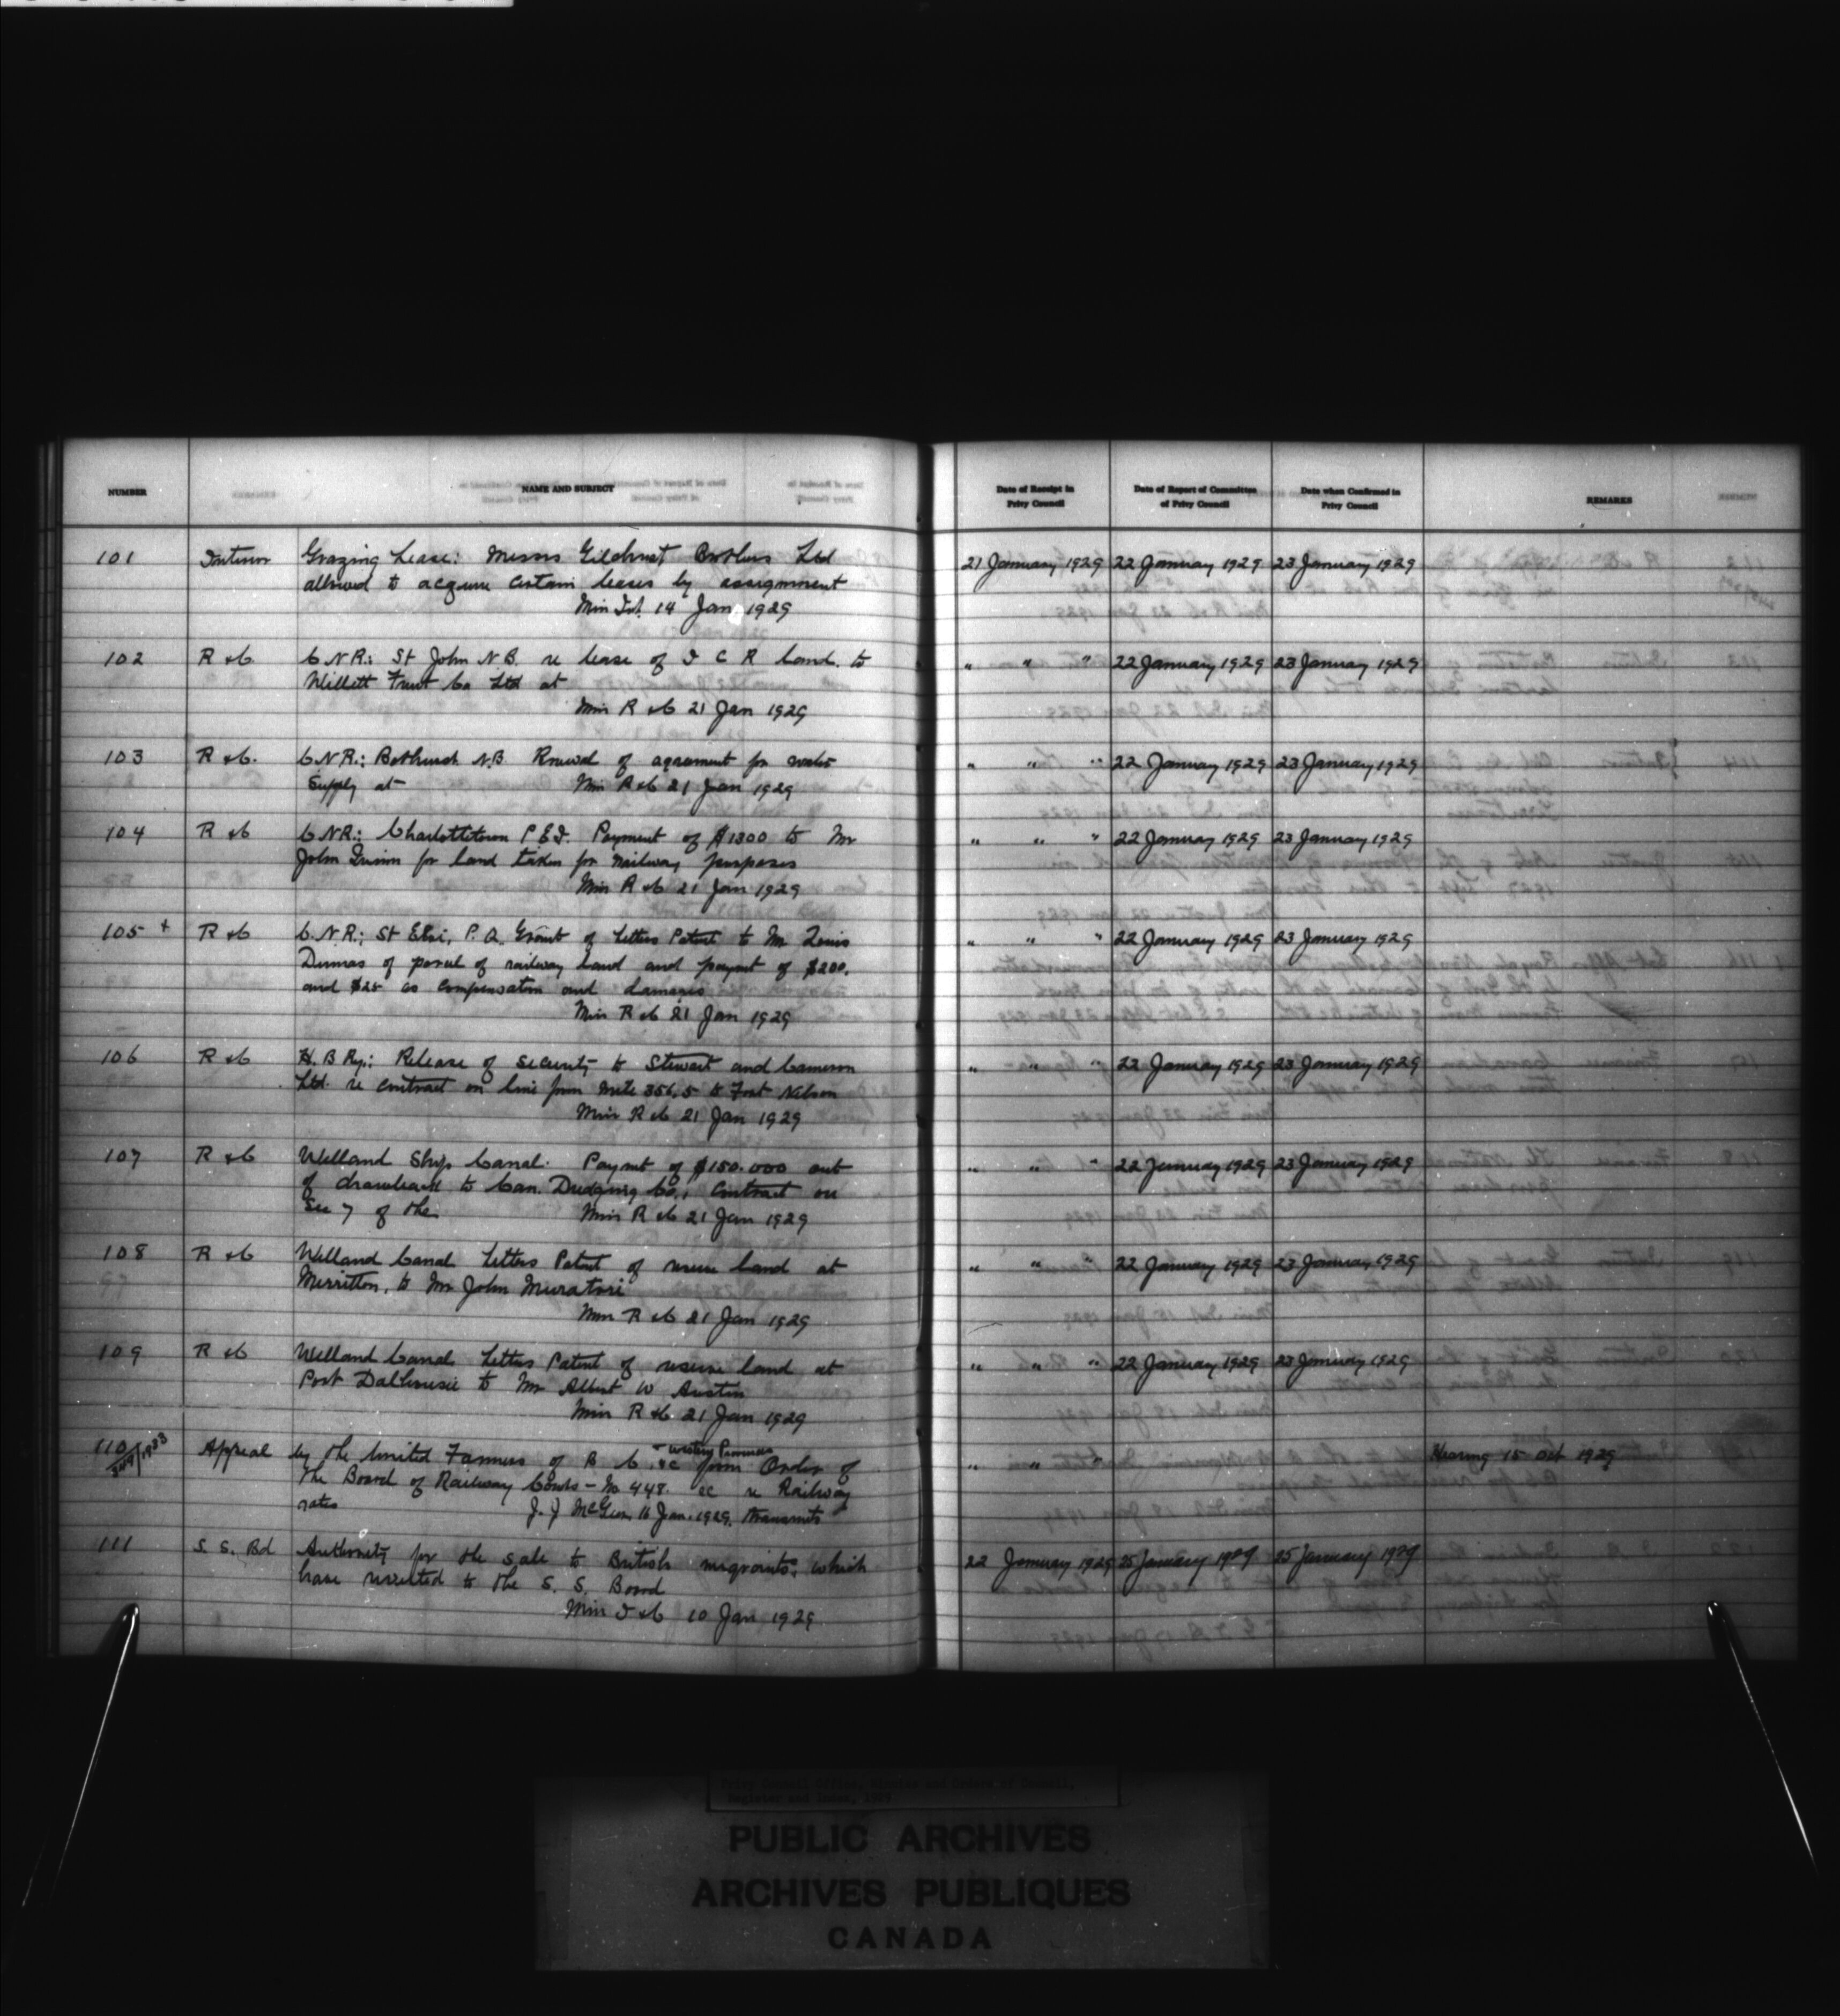 NUMBER NAME AND SUBJECT Date of Receipt in Privy Council Date of Report of Committee of Privy Council Date when Confirmed in Privy Council REMARKS
101 Interior Grazing Lease: Messrs Gilchrist Brothers Ltd 21 January 1929 22 January 1929 23 January 1929
allowed to acquire certain leases by assignment
Min Int. 14 Jan 1929
102 R & C C.N.R.: St John N.B. re lease of I C R land. to " " " 22 January 1929 23 January 1929
Willett Fruit Co Ltd at
Min R & C 21 Jan 1929
103 R & C. C.N.R.: Bathurst N.B. Renewal of agreement for water " " " 22 January 1929 23 January 1929
Supply at Min R & C 21 Jan 1929
104 R & C C.N.R.: Charlottetown P.E.I. Payment of $1300 to Mr " " " 22 January 1929 23 January 1929
John Quinn for land taken for railway purposes
Min R & C 21 Jan 1929
105 + R & C C.N.R.: St Eloi, P.Q. Grant of Letters Patent to Mr Louis " " " 22 January 1929 23 January 1929
Dumas of parcel of railway land and paymt of $200.
and $25 as compensation and damages
Min R & C 21 Jan 1929
106 R & C H.B Ry: Release of security to Stewart and Cameron " " " 22 January 1929 23 January 1929
Ltd. re contract on line from Mile 356.5 to Fort Nelson
Min R & C 21 Jan 1929
107 R & C Welland Ship Canal. Paymt of $150.000 out " " " 22 January 1929 23 January 1929
of drawback to Can. Dredging Co., Contract on
Sec 7 of the Min R & C 21 Jan 1929
108 R & C Welland Canal Letters Patent of reserve land at " " " 22 January 1929 23 January 1929
Merritton, to Mr John Muratori
Min R & C 21 Jan 1929
109 R & C Welland Canal Letters Patent of reserve land at " " " 22 January 1929 23 January 1929
Port Dalhousie to Mr Albert W Austin
Min R & C. 21 Jan 1929
110 Appeal by the United Farmers of B C. &c from Order of " " " Hearing 15 Oct 1929
1933 Western Provinces
the Board of Railway Comrs - No 448. &c re Railway
rates 16 Jan. 1929. transmits
111 S. S. Bd Authority for the sale to British migrants, which 22 January 1929 25 January 1929 25 January 1929
have reverted to the S. S. Board
Min I & C 10 Jan 1929
Privy Council Office, Minutes and Orders in Council,
Register and Index, 1929
PUBLIC ARCHIVES
ARCHIVES PUBLIQUES
CANADA